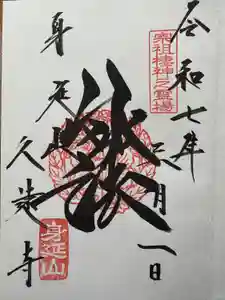 宗祖棲神之霊場
令和七年
月一日
妙法
身延山
久遠寺
身延山